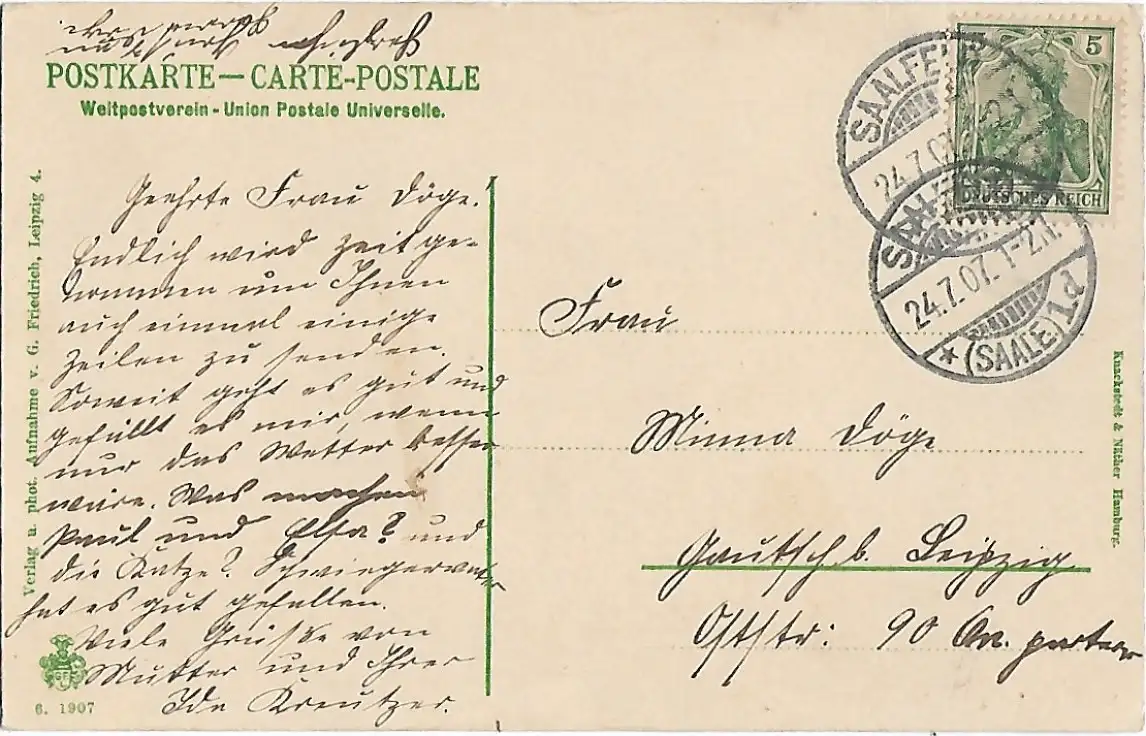 POSTKARTE — CARTE-POSTALE
Weltpostverein - Union Postale Universelle.
Geehrte Frau Döge.
Endlich wird Zeit ge-
nommen um Ihnen
auch einmal einige
Zeilen zu senden.
Soweit geht es gut und
gefällt es mir, wenn
nur das Wetter besser
wäre. Was machen
Paul und Elsa? und
die Katze? Schwiegervater
hat es gut gefallen.
Viele Grüße von
Mutter und Ihrer
Ida Kreutzer.
Frau
Minna Döge
Gautzsch b. Leipzig
Oststr: 90 parterre
5
DEUTSCHES REICH
SAALFELD
24.7.07
24.7.07. 1-2N.
* (SAALE) 1.d
Verlag u. phot. Aufnahme v. G. Friedrich, Leipzig 4.
Knackstedt & Näther Hamburg.
GF
6. 1907